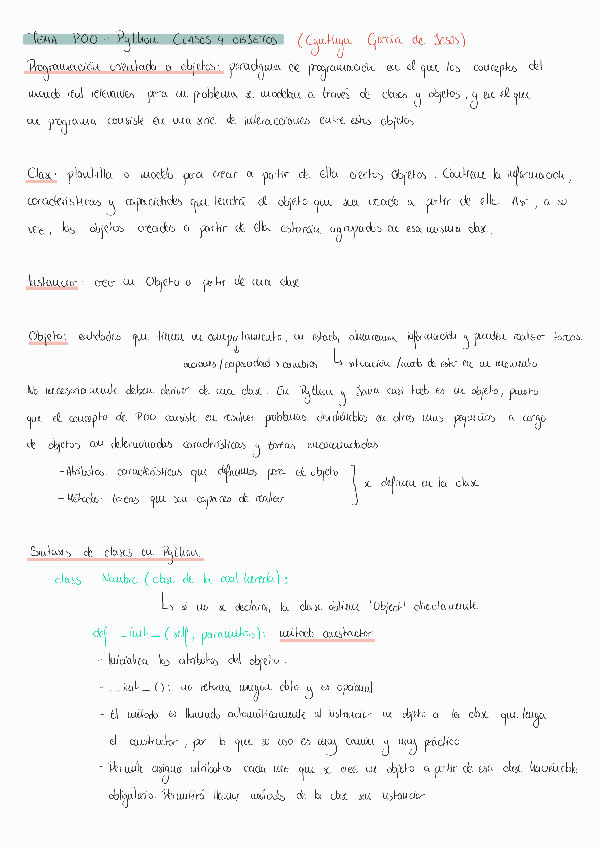 TEMA POO - Python CLASES Y OBJETOS (Cynthya García de Jesús)
Programación orientada a objetos: paradigma de programación en el que los conceptos del
mundo real relevantes para un problema se modelan a través de clases y objetos, y en el que
un programa consiste en una serie de interacciones entre estos objetos
Clase: plantilla o modelo para crear a partir de ella ciertos Objetos. Contiene la información,
características y capacidades que tendrá el objeto que sea creado a partir de ella. Así, a su
vez, los objetos creados a partir de ella estarán agrupados en esa misma clase.
Instanciar: crear un Objeto a partir de una clase
Objeto: entidades que tienen un comportamiento, un estado, almacenan información y pueden realizar tareas.
acciones/capacidad o cambios ↳ situación/modo de estar en un momento
No necesariamente deben derivar de una clase. En Python y Java casi todo es un objeto, puesto
que el concepto de POO consiste en resolver problemas dividiéndolos en otros más pequeños a cargo
de objetos con determinadas características y tareas encomendadas
- Atributos: características que definimos para el objeto
- Métodos: tareas que son capaces de realizar
se definen en la clase
Sintaxis de clases en Python
class Nombre (clase de la cual hereda):
↳ si no se declara, la clase obtiene "Object" directamente
def __init__(self, parametros): método constructor
- Inicializa los atributos del objeto.
- __init__(): no retorna ningún dato y es opcional
- El método es llamado automáticamente al instanciar un objeto a la clase que tenga
el constructor, por lo que su uso es muy común y muy práctico
- Permite asignar atributos cada vez que se cree un objeto a partir de esa clase haciéndolo
obligatorio. Permitirá llamar métodos de la clase sin instanciar